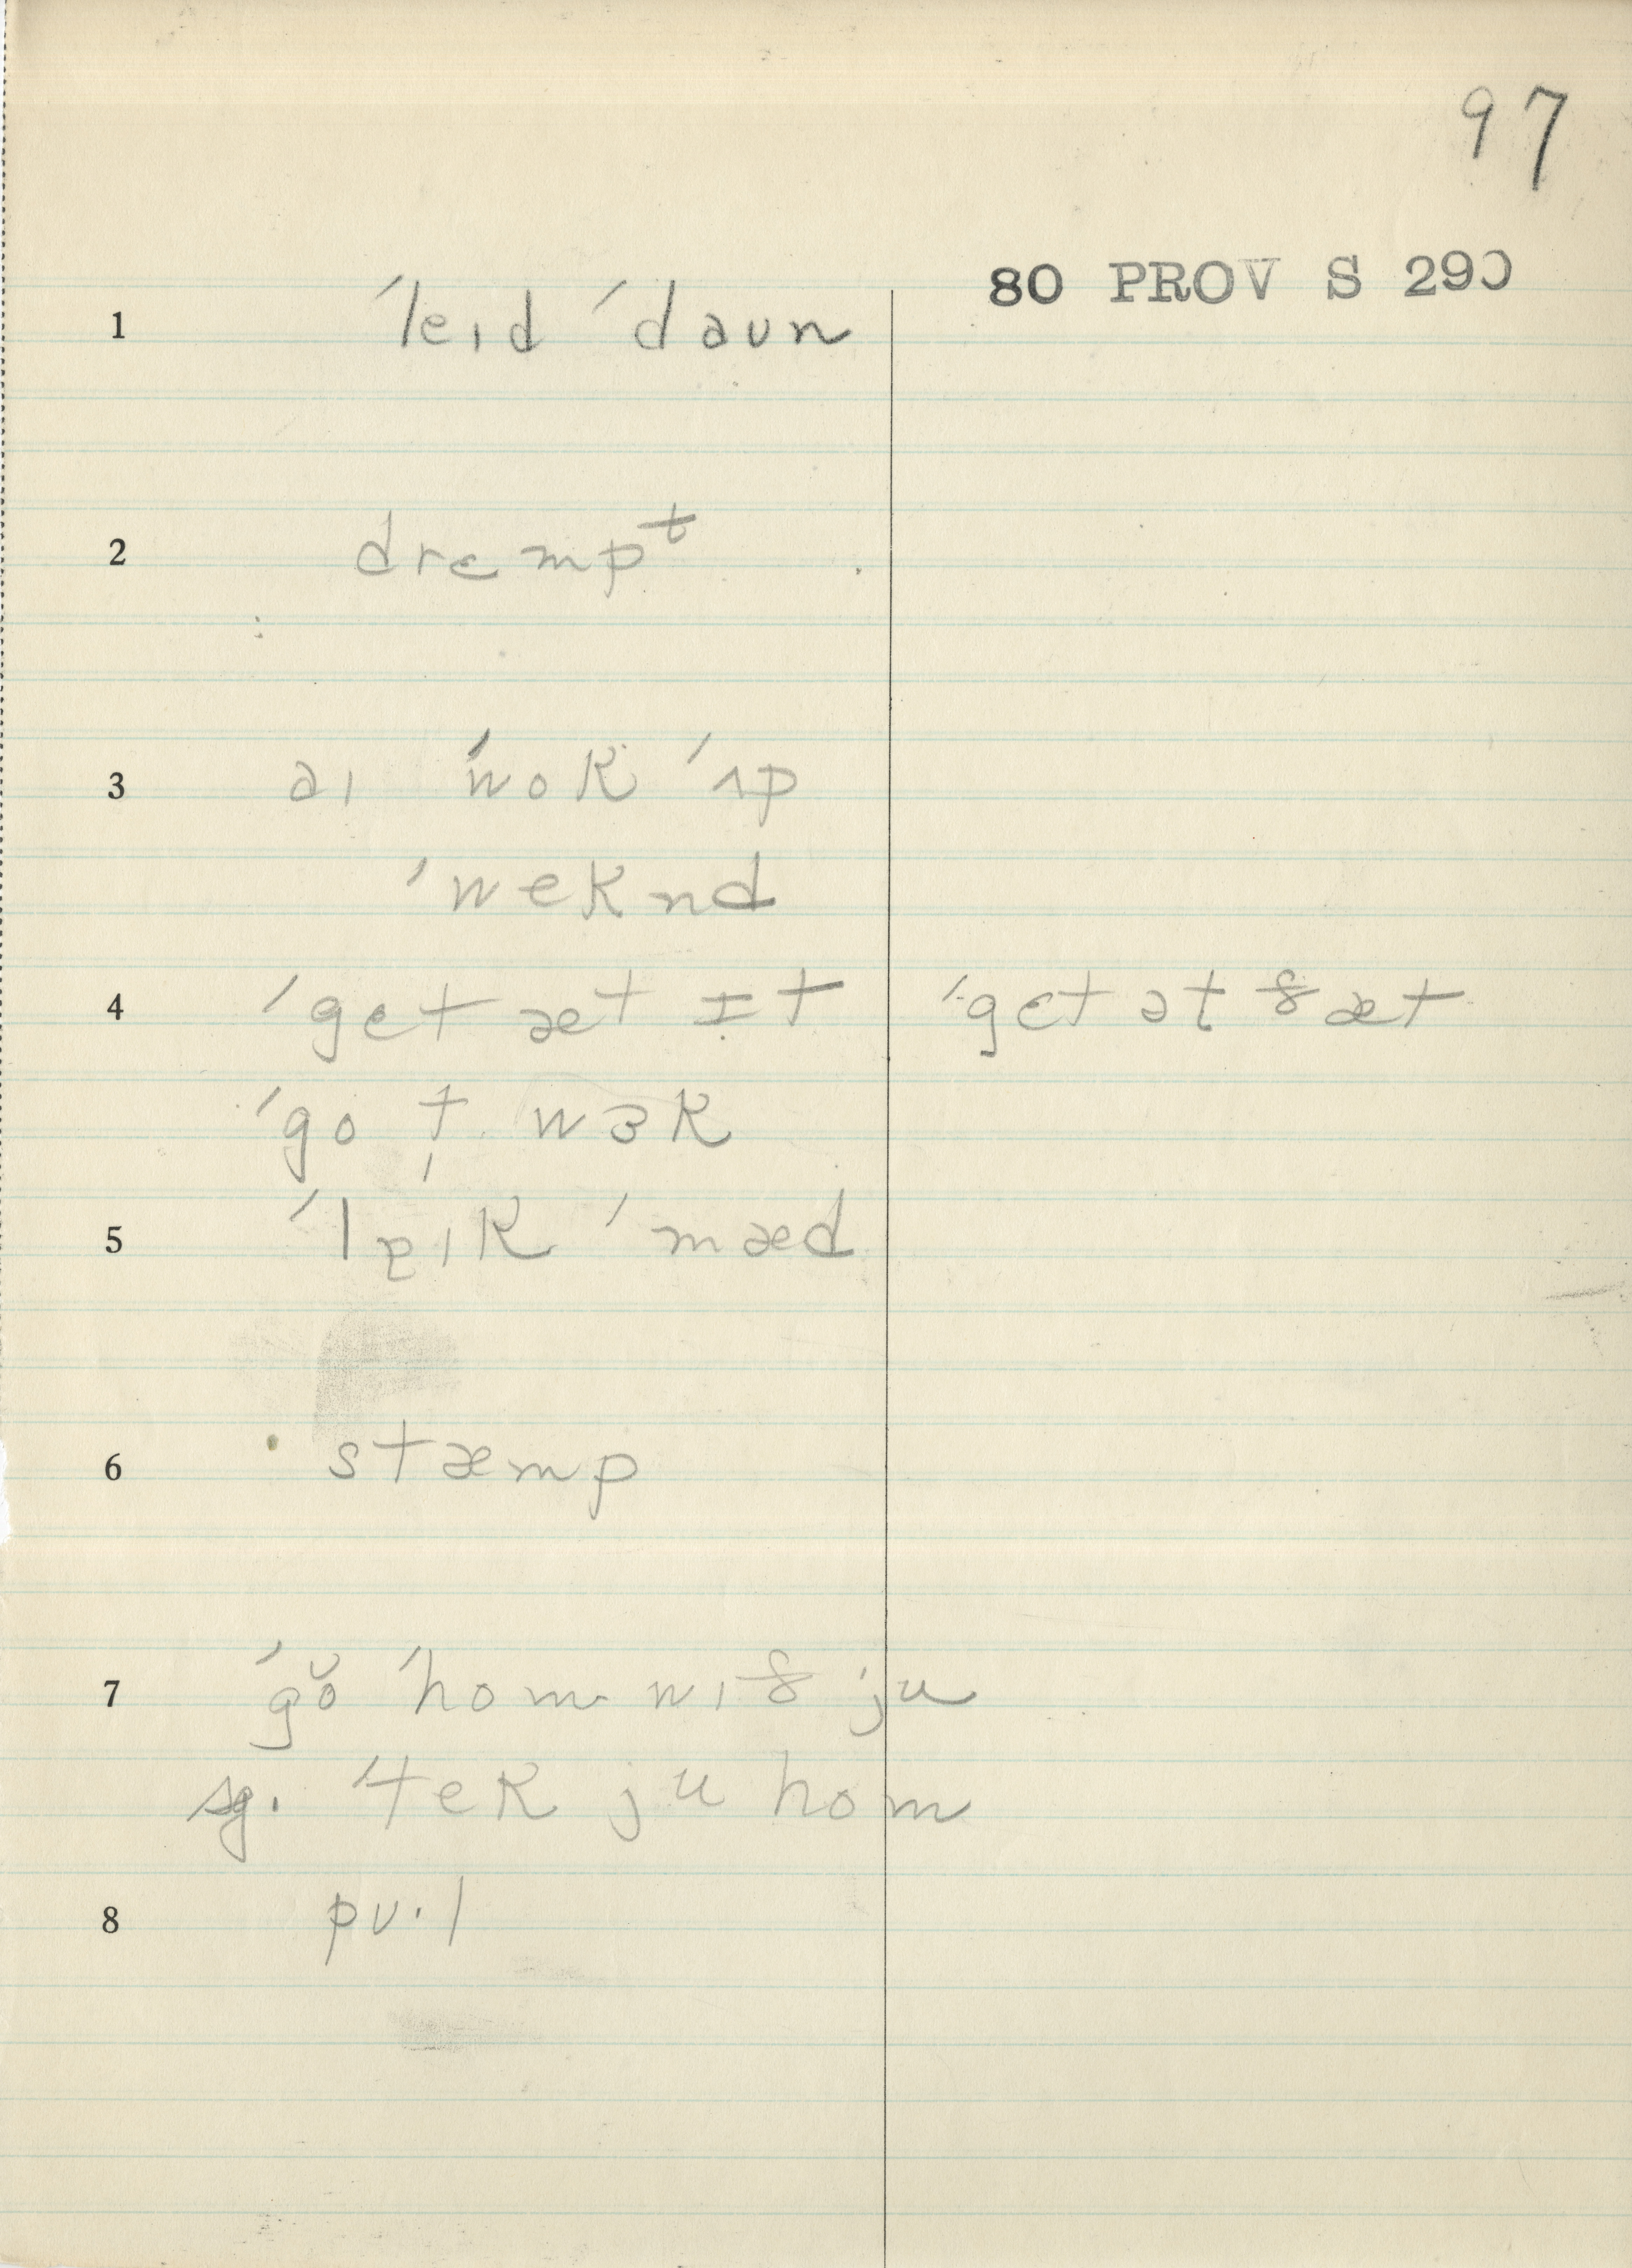 97
80 PROV S 290
1 ˈleɪd ˈdaun
2 drɛmpᵗ
3 aɪ ˈwok ˈʌp
ˈweknd
4 ˈgɛt æt ɪt ˈgɛt ət ðæt
ˈgo t wɜk
5 ˈlʊɪk ˈmæd
6 stæmp
7 ˈgŏ ˈhom wɪð ju
sg. ˈtek ju hom
8 pʊ·l